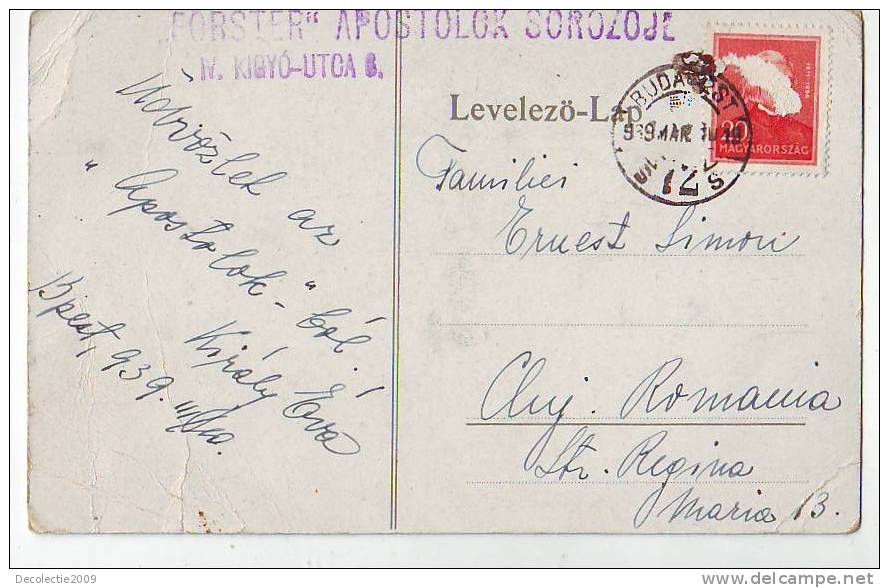 „FÖRSTER“ APOSTOLOK SÖRÖZŐJE
IV. KIGYÓ-UTCA 6.
Üdvözlet az
„Apostolok“-ból!
Király Éva
Bpest, 939. III/10.
Levelező-Lap
BUDAPEST
MAR 10
71
20
MAGYARORSZÁG
Familiei
Ernest Simon
Cluj. Romania
Str. Regina
Maria 13.
Decolectie2009
www.delcampe.net